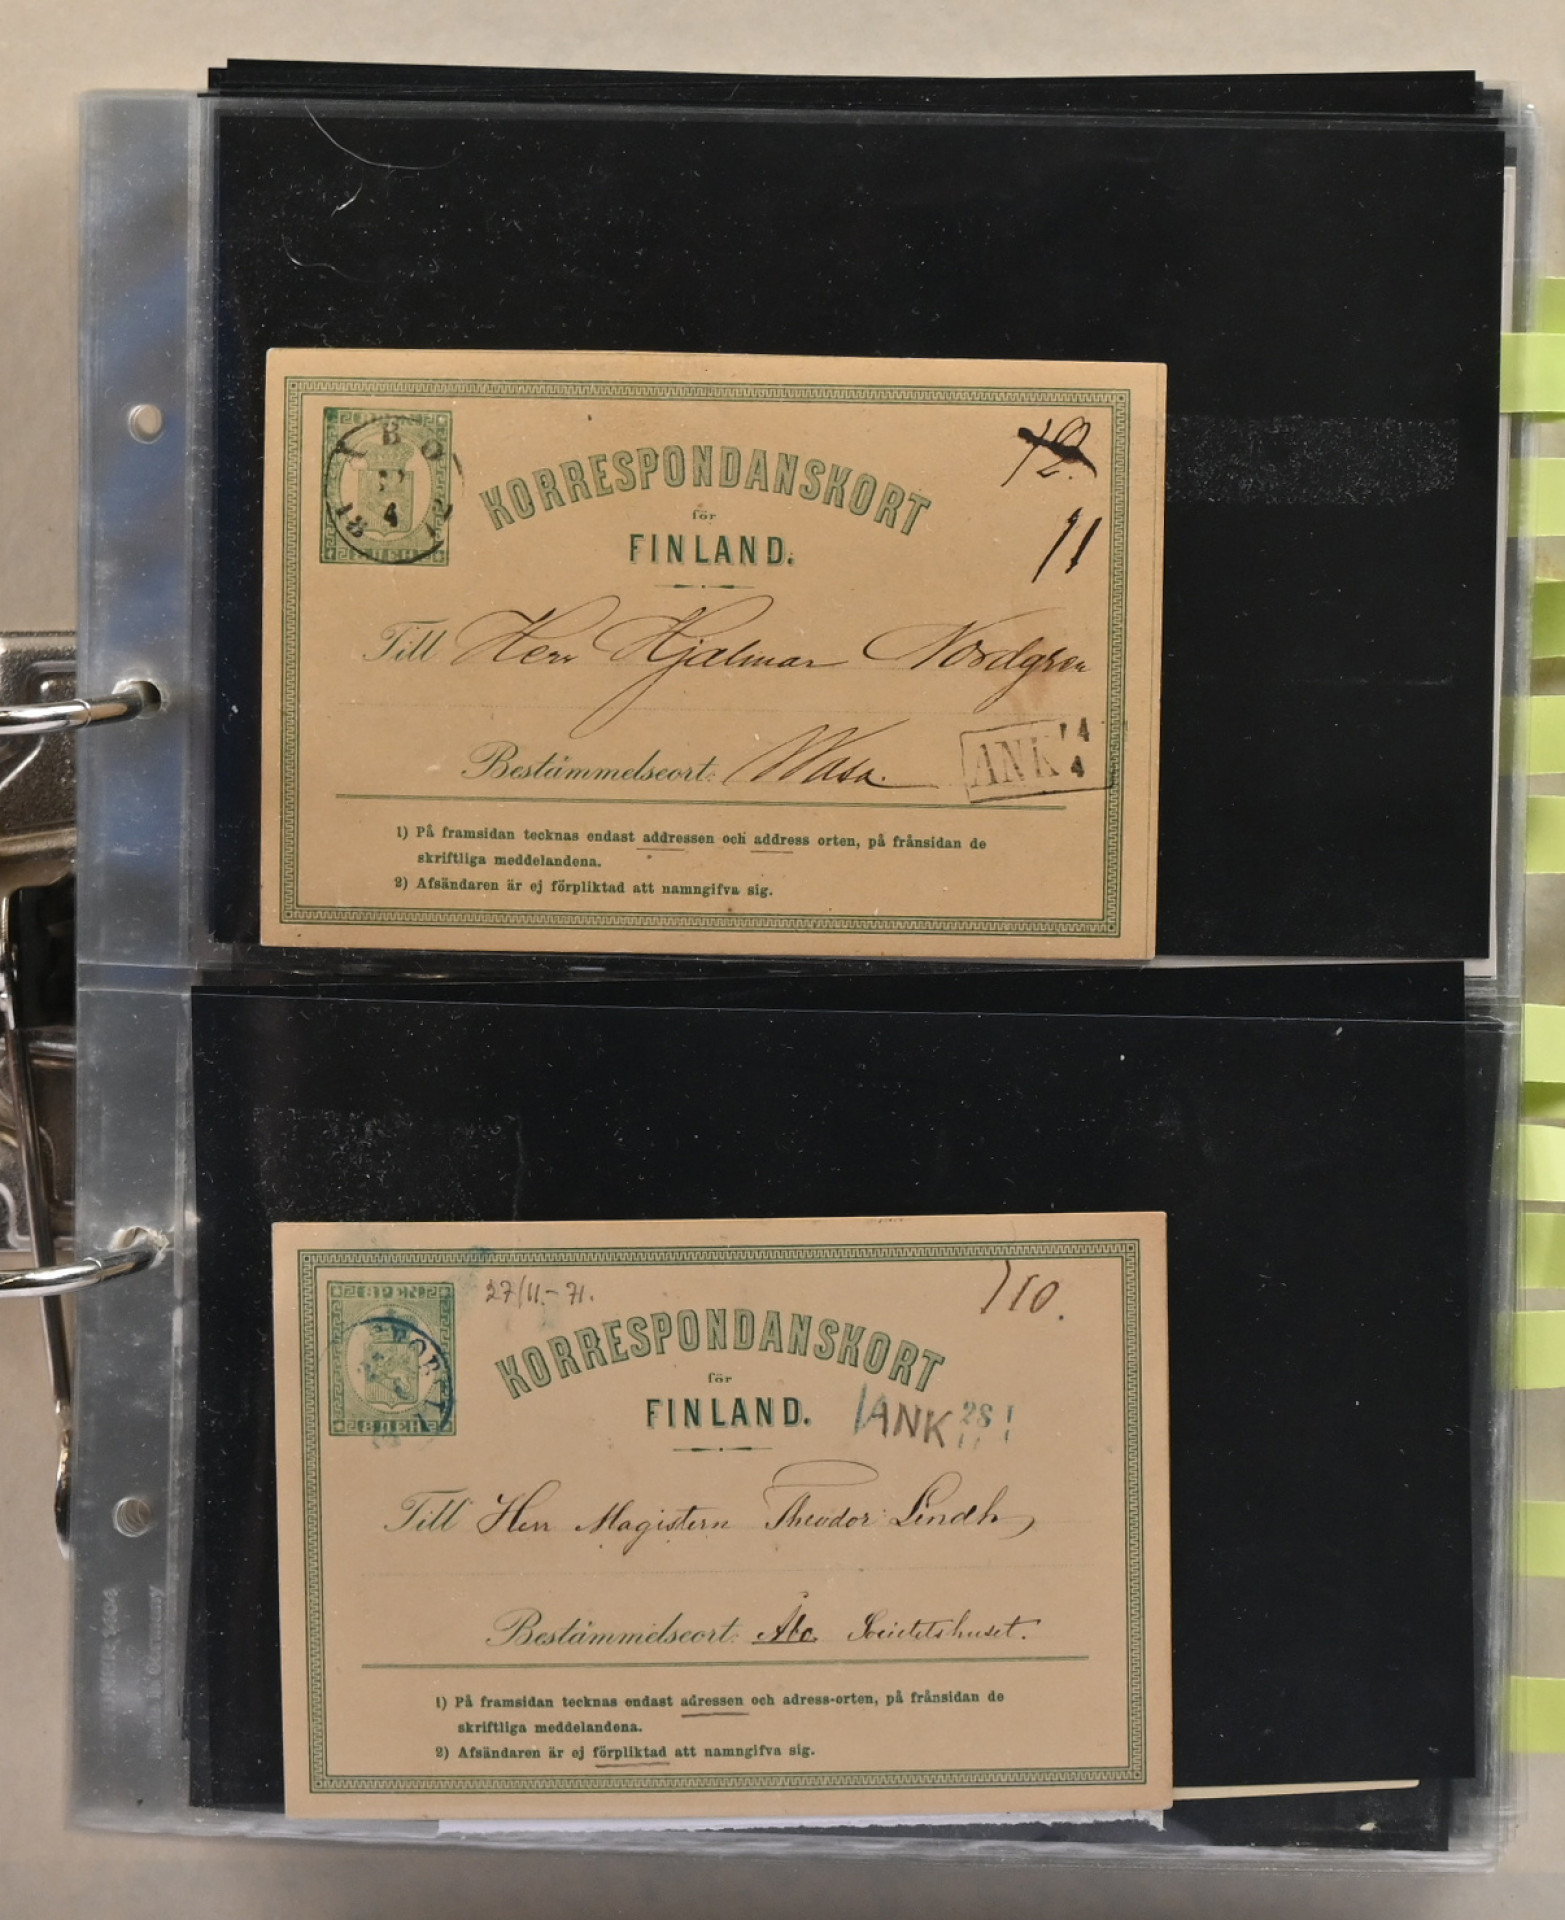 8 PEN
8 ПЕН
ÅBO
4
18 71
12.
11
KORRESPONDANSKORT
för
FINLAND.
Till Herr Hjalmar Nordgren
Bestämmelseort: Wasa.
ANK 14
4
1) På framsidan tecknas endast addressen och address orten, på frånsidan de
skriftliga meddelandena.
2) Afsändaren är ej förpliktad att namngifva sig.
8 PEN
8 ПЕН
27/11.-71.
110.
KORRESPONDANSKORT
för
FINLAND.
ANK 28
11
Till Herr Magistern Theodor Lindh
Bestämmelseort: Åbo. Societetshuset.
1) På framsidan tecknas endast adressen och adress-orten, på frånsidan de
skriftliga meddelandena.
2) Afsändaren är ej förpliktad att namngifva sig.